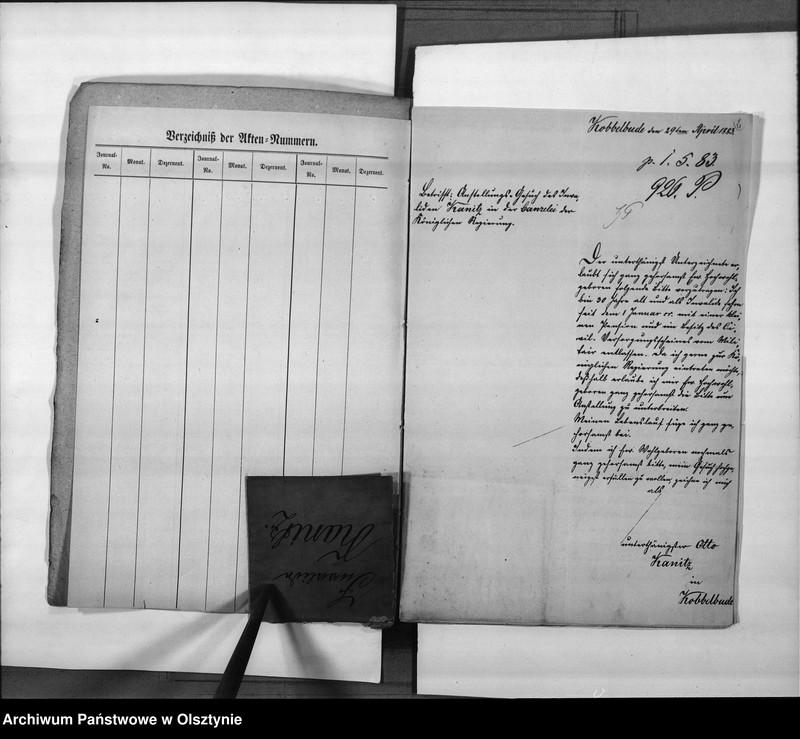 Verzeichniß der Akten-Nummern.
Journal-No. Monat. Dezernent. Journal-No. Monat. Dezernent. Journal-No. Monat. Dezernent.
Invalide
Kanitz.
Kobbelbude den 29ten April 1883
p. 1. 5. 83
926. P.
Betrifft: Anstellungs-Gesuch des Inva-
liden Kanitz in der Canzlei der
Königlichen Regierung.
Der unterthänigst Unterzeichnete er-
laubt sich ganz gehorsamst Ew. Hochwohl-
geboren folgende Bitte vorzutragen: Ich
bin 30 Jahre alt und als Invalide schon
seit dem 1 Januar cr. mit einer klei-
nen Pension und im Besitz des Ci-
vil-Versorgungsscheines vom Mili-
tair entlassen. Da ich gern zur Kö-
niglichen Regierung eintreten möchte,
deßhalb erlaube ich mir Ew. Hochwohl-
geboren ganz gehorsamst die Bitte um
Anstellung zu unterbreiten.
Meinen Lebenslauf füge ich ganz ge-
horsamst bei.
Indem ich Ew. Wohlgeboren nochmals
ganz gehorsamst bitte, mein Gesuch
erfüllen zu wollen, zeichne ich mich
als
unterthänigster Otto
Kanitz
in
Kobbelbude
Archiwum Państwowe w Olsztynie